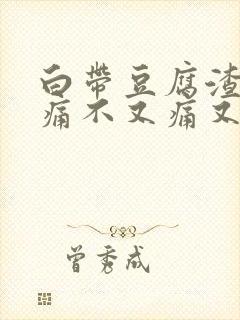 白帶豆腐渣
痛不又痛又
曾秀成